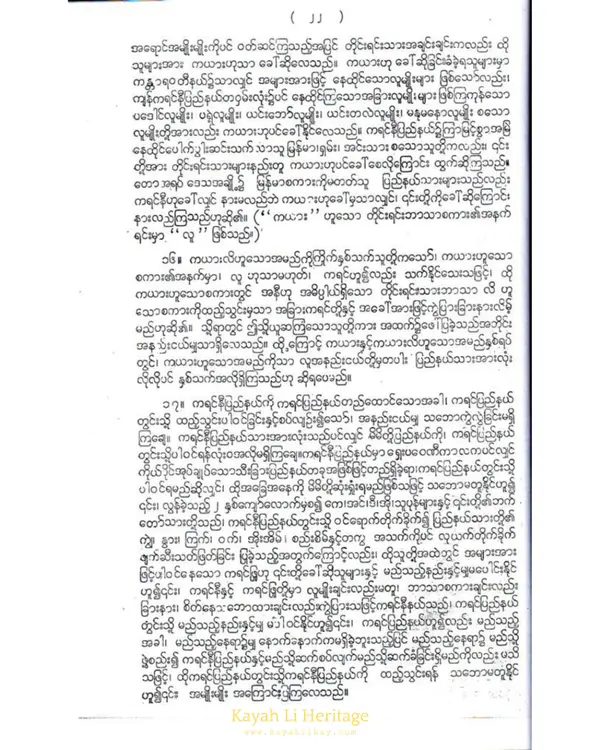 ( ၂၂ )
အရောင်အမျိုးမျိုးကိုပင် ဝတ်ဆင်ကြသည့်အပြင် တိုင်းရင်းသားအချင်းချင်းကလည်း ထို
သူများအား ကယားဟုသာ ခေါ်ဆိုလေသည်။ ကယားဟု ခေါ်ဆိုခြင်းခံခဲ့ရသူများမှာ
ကန္တာရဝတီနယ်၌သာလျှင် အများအားဖြင့် နေထိုင်သောလူမျိုးများ ဖြစ်သော်လည်း၊
ကျန်ကရင်နီပြည်နယ်တဝှမ်းလုံး၌ပင် နေထိုင်ကြသောအခြားလူမျိုးများဖြစ်ကြကုန်သော
ပဒေါင်လူမျိုး၊ ပရဲ့လူမျိုး၊ ယင်းဘော်လူမျိုး၊ ယင်းတလဲလူမျိုး၊ မနုမနောလူမျိုး စသော
လူမျိုးတို့အားလည်း ကယားဟုပင်ခေါ်နိုင်လေသည်။ ကရင်နီပြည်နယ်၌ကြာမြင့်စွာအမြဲ
နေထိုင်ပေါက်ပွါးဆင်းသက်လာသူမြန်မာ၊ရှမ်း၊ အင်းသား စသောသူတို့ကလည်း၊ ၎င်း
တို့အား တိုင်းရင်းသားများနည်းတူ ကယားဟုပင်ခေါ်စေလိုကြောင်း ထွက်ဆိုကြသည်။
တောအရပ် ဒေသအချို့၌ မြန်မာစကားကိုမတတ်သူ ပြည်နယ်သားများသည်လည်း
ကရင်နီဟုခေါ်လျှင် နားမလည်ဘဲ ကယားဟုခေါ်မှသာလျှင်၊ ၎င်းတို့ကိုခေါ်ကြောင်း
နားလည်ကြသည်ဟုဆို၏။ (“ကယား” ဟူသော တိုင်းရင်းဘာသာစကား၏အနက်
ရင်းမှာ “လူ” ဖြစ်သည်။)
၁၆။ ကယားလိဟူသောအမည်ကိုကြိုက်နှစ်သက်သူတို့ကသော်၊ ကယားဟူသော
စကား၏အနက်မှာ၊ လူ ဟုသာမဟုတ်၊ ကရင်ဟူ၍လည်း သက်နိုင်သေးသဖြင့်၊ ထို
ကယားဟူသောစကားတွင် အနီဟု အဓိပ္ပါယ်ရှိသော တိုင်းရင်းသားဘာသာ လိ ဟူ
သောစကားကိုထည့်သွင်းမှသာ အခြားကရင်တို့နှင့် အခေါ်အားဖြင့်ကွဲပြားခြားနားလိမ့်
မည်ဟုဆို၏။ သို့ရာတွင် ဤသို့ယူဆကြသောသူတို့ကား အထက်၌ဖေါ်ပြခဲ့သည့်အတိုင်း
အနည်းငယ်မျှသာရှိလေသည်။ ထို့ကြောင့် ကယားနှင့်ကယားလိဟူသောအမည်နှစ်ရပ်
တွင်၊ ကယားဟူသောအမည်ကိုသာ လူအနည်းငယ်တို့မှတပါး ပြည်နယ်သားအားလုံး
လိုလိုပင် နှစ်သက်အလိုရှိကြသည်ဟု ဆိုရပေမည်။
၁၇။ ကရင်နီပြည်နယ်ကို ကရင်ပြည်နယ်တည်ထောင်သောအခါ၊ ကရင်ပြည်နယ်
တွင်းသို့ ထည့်သွင်းပါဝင်ခြင်းနှင့်စပ်လျဉ်း၍သော်၊ အနည်းငယ်မျှ သဘောကွဲလွဲခြင်းမရှိ
ကြချေ။ ကရင်နီပြည်နယ်သားအားလုံးသည်ပင်လျှင် မိမိတို့ပြည်နယ်ကို၊ ကရင်ပြည်နယ်
တွင်းသို့ပါဝင်ရန်လုံးဝအလိုမရှိကြချေ။ကရင်နီပြည်နယ်မှာ ရှေးပဝေဏီကာလကပင်လျှင်
ကိုယ်ပိုင်အုပ်ချုပ်သောသီးခြားပြည်နယ်တခုအဖြစ်ဖြင့်တည်ရှိခဲ့ရာ၊ကရင်ပြည်နယ်တွင်းသို့
ပါဝင်ရမည်ဆိုလျှင်၊ ထိုအခြေအနေကို မိမိတို့ဆုံးရှုံးရမည်ဖြစ်သဖြင့် သဘောမတူနိုင်ဟူ၍
၎င်း၊ လွန်ခဲ့သည့် ၂ နှစ်ကျော်လောက်မှစ၍ ကေ၊အင်၊ဒီ၊အို၊သူပုန်များနှင့် ၎င်းတို့၏ဘက်
တော်သားတို့သည်၊ ကရင်နီပြည်နယ်တွင်းသို့ ဝင်ရောက်တိုက်ခိုက်၍ ပြည်နယ်သားတို့၏
ကျွဲ၊ နွား၊ ကြက်၊ ဝက်၊ အိုးအိမ်၊ စည်းစိမ်နှင့်တကွ အသက်ကိုပင် လုယက်တိုက်ခိုက်
ဖျက်ဆီးသတ်ဖြတ်ခြင်း ပြုခဲ့သည့်အတွက်ကြောင့်လည်း၊ ထိုသူတို့အထဲတွင် အများအား
ဖြင့်ပါဝင်နေသော ကရင်ဖြူဟု ၎င်းတို့ခေါ်ဆိုသူများနှင့် မည်သည့်နည်းနှင့်မျှမပေါင်းနိုင်
ဟူ၍၎င်း၊ ကရင်နီနှင့် ကရင်ဖြူတို့မှာ လူမျိုးချင်းလည်းမတူ၊ ဘာသာစကားချင်းလည်း
ခြားနား၊ စိတ်နေသဘောထားချင်းလည်းကွဲပြားသဖြင့်ကရင်နီနယ်သည်၊ ကရင်ပြည်နယ်
တွင်းသို့ မည်သည့်နည်းနှင့်မျှ မပါဝင်နိုင်ဟူ၍၎င်း၊ ကရင်ပြည်နယ်ဟူ၍လည်း မည်သည့်
အခါ၊ မည်သည့်နေရာ၌မျှ နောက်နောက်ကမရှိခဲ့ဘူးသည့်ပြင် မည်သည့်နေရာ၌ မည်သို့
ဖွဲ့စည်း၍ ကရင်နီပြည်နယ်နှင့်မည်သို့ဆက်စပ်လျက်မည်သို့ဆက်ဆံခြင်းရှိမည်ကိုလည်း မသိ
သဖြင့်၊ ထိုကရင်ပြည်နယ်တွင်းသို့ကရင်နီပြည်နယ်ကို ထည့်သွင်းရန် သဘောမတူနိုင်
ဟူ၍၎င်း အမျိုးမျိုး အကြောင်းပြကြလေသည်။
Kayah Li Heritage
www.kayahlikay.com